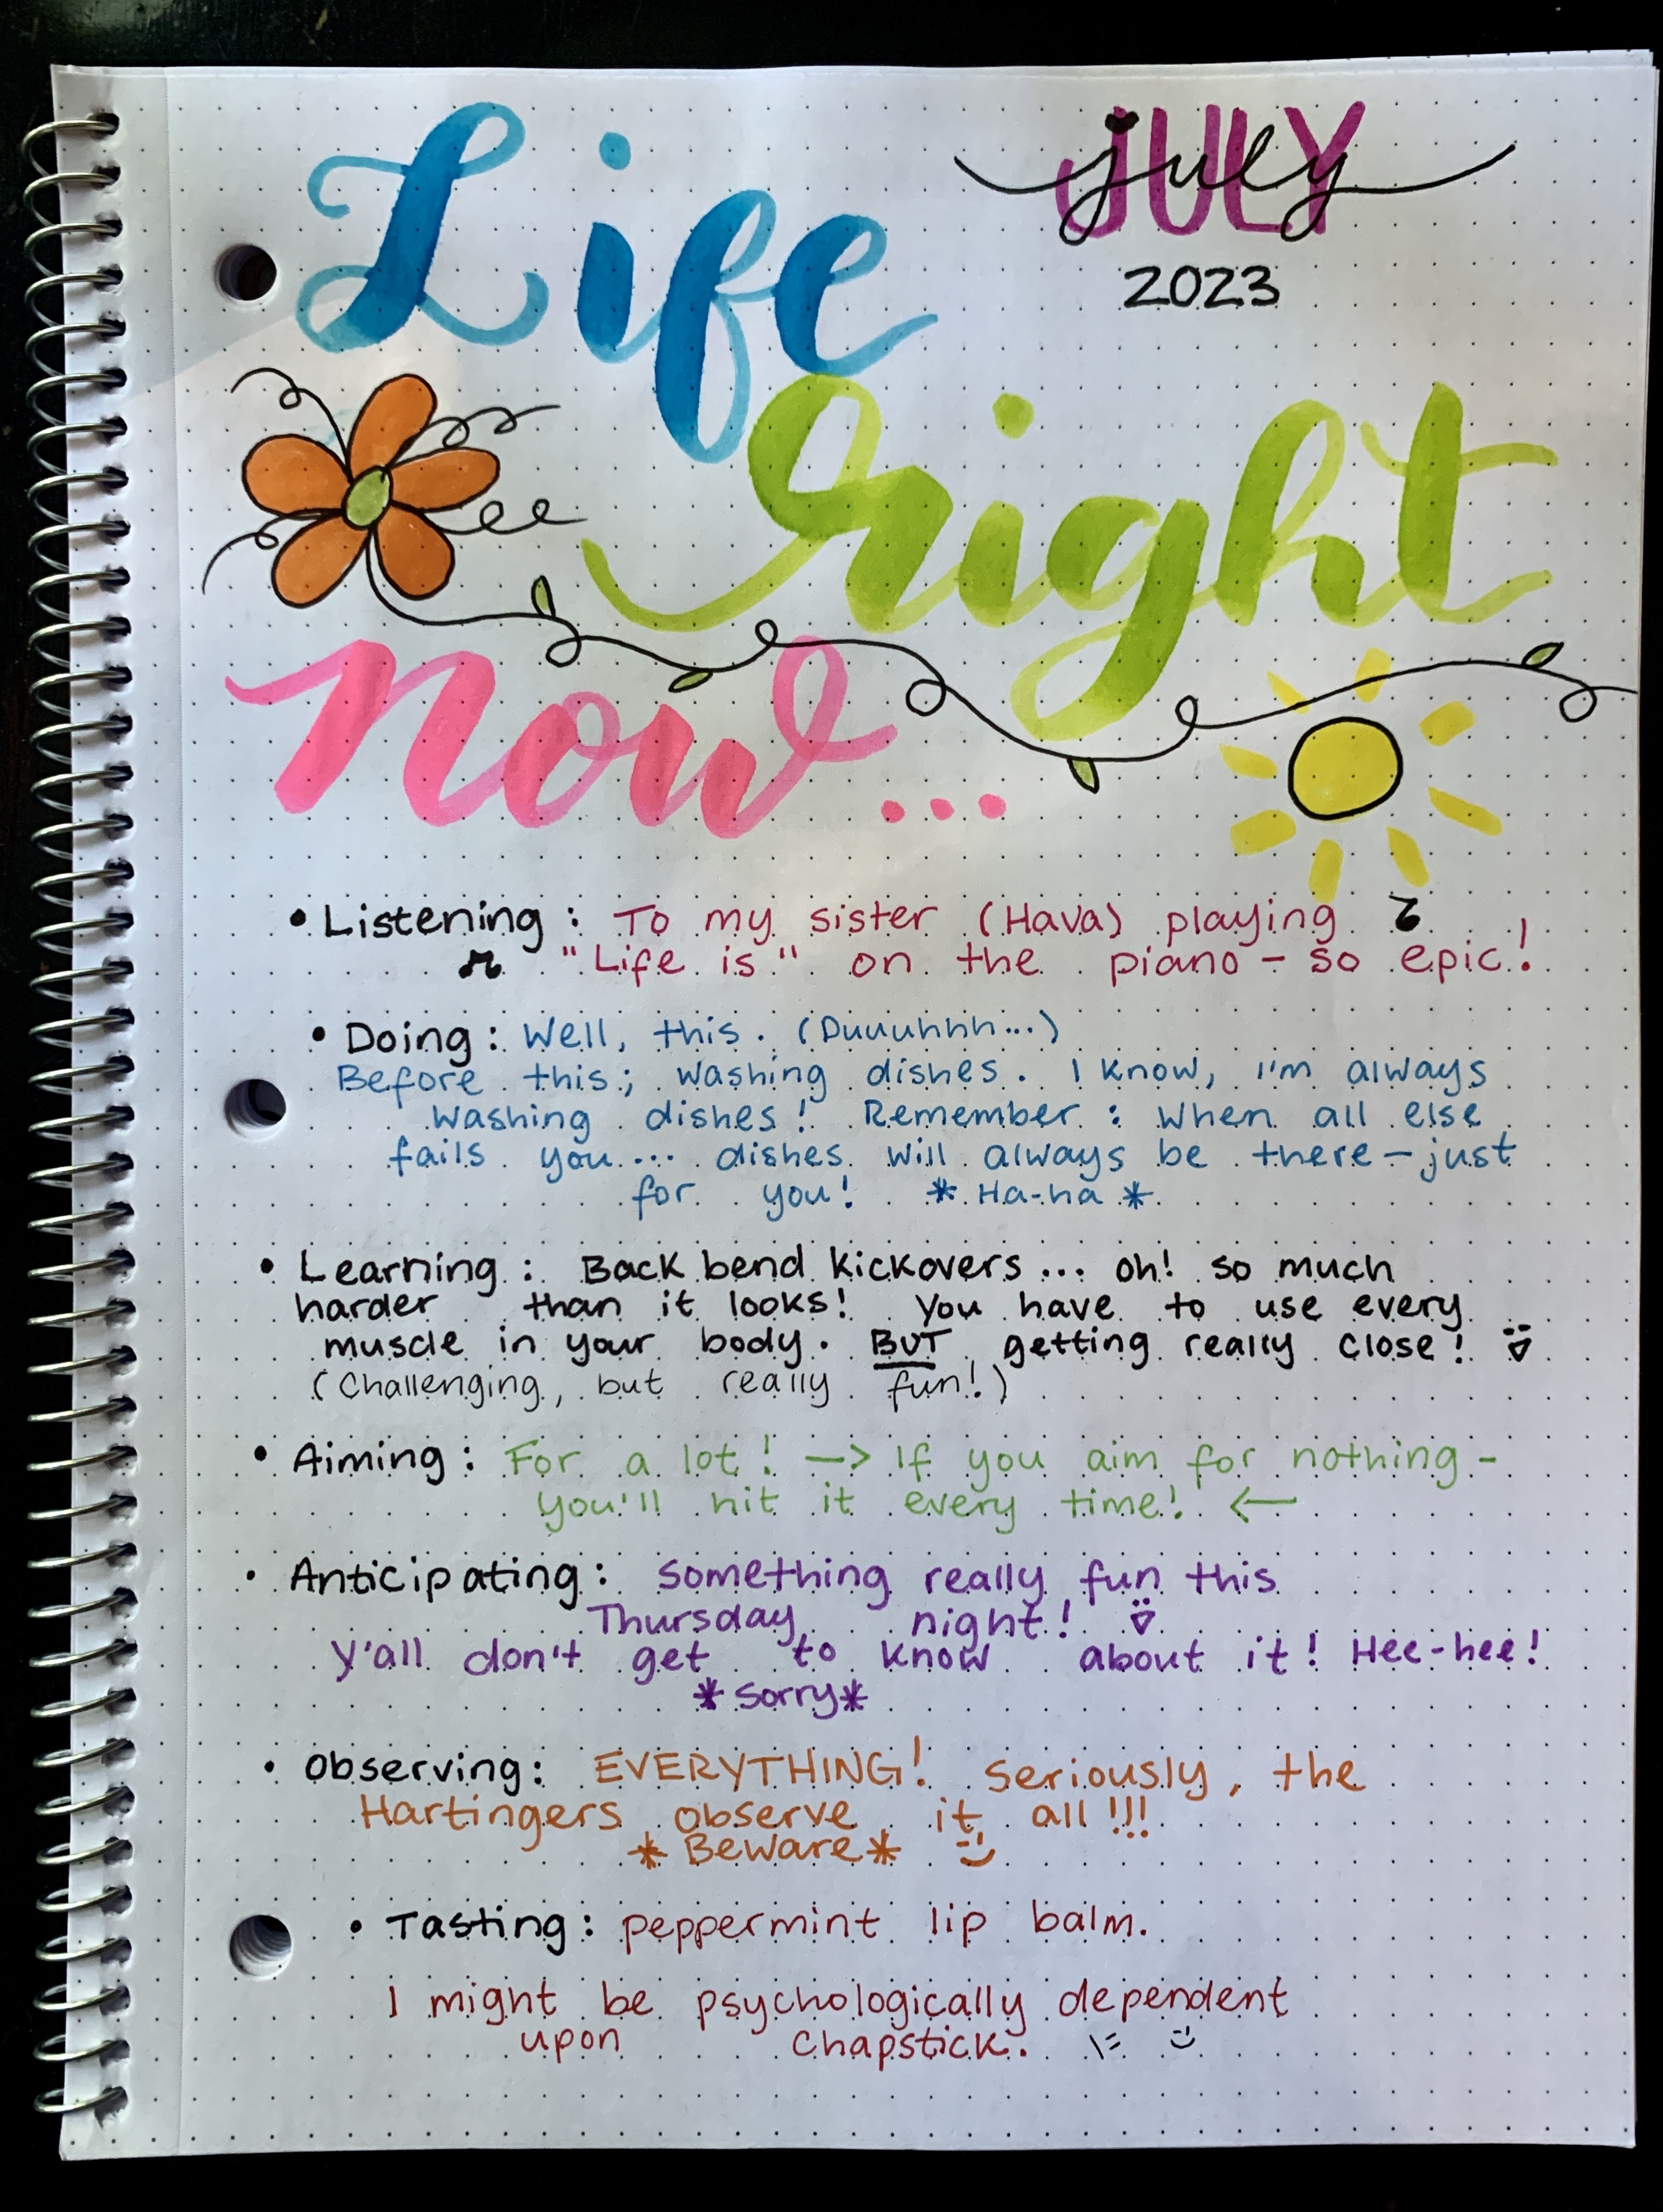 Life
JULY
july
2023
right
now...
• Listening: To my sister (Hava) playing
"Life is" on the piano - so epic!
• Doing: Well, this. (Duuuhhh...)
Before this; washing dishes. I know, I'm always
washing dishes! Remember: When all else
fails you... dishes will always be there - just
for you! *Ha-ha*
• Learning: Back bend kickovers... oh! so much
harder than it looks! You have to use every
muscle in your body. BUT getting really close!
(Challenging, but really fun!)
• Aiming: For a lot! —> If you aim for nothing -
you'll hit it every time! <—
• Anticipating: Something really fun this
Thursday night!
Y'all don't get to know about it! Hee-hee!
*Sorry*
• Observing: EVERYTHING! Seriously, the
Hartingers observe it all!!!
*Beware*
• Tasting: peppermint lip balm.
I might be psychologically dependent
upon Chapstick.